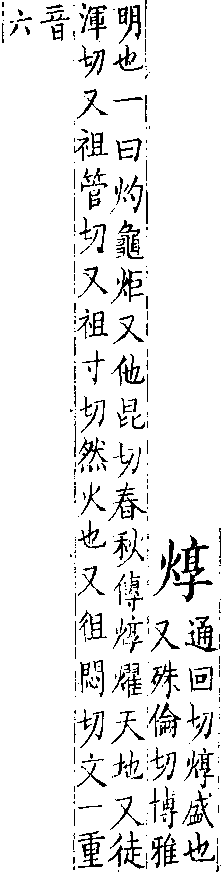 焞通回切焞盛也
又殊倫切博雅
明也一曰灼龜炬又他昆切春秋傳焞燿天地又徒
渾切又祖管切又祖寸切然火也又徂悶切文一重
音六